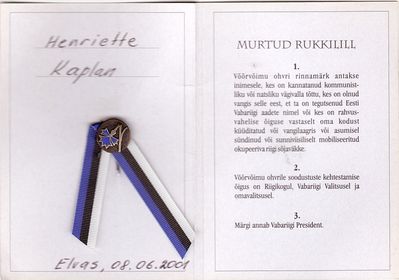 Henriette
Kaplan
Elvas, 08.06.2001
MURTUD RUKKILILL
1.
Võõrvõimu ohvri rinnamärk antakse
inimesele, kes on kannatanud kommunist-
liku või natsliku vägivalla tõttu, kes on olnud
vangis selle eest, et ta on tegutsenud Eesti
Vabariigi aadete nimel või kes on rahvus-
vahelise õiguse vastaselt oma kodust
küüditatud või vangilaagris või asumisel
sündinud või sunniviisiliselt mobiliseeritud
okupeeriva riigi sõjaväkke.
2.
Võõrvõimu ohvrile soodustuste kehtestamise
õigus on Riigikogul, Vabariigi Valitsusel ja
omavalitsusel.
3.
Märgi annab Vabariigi President.